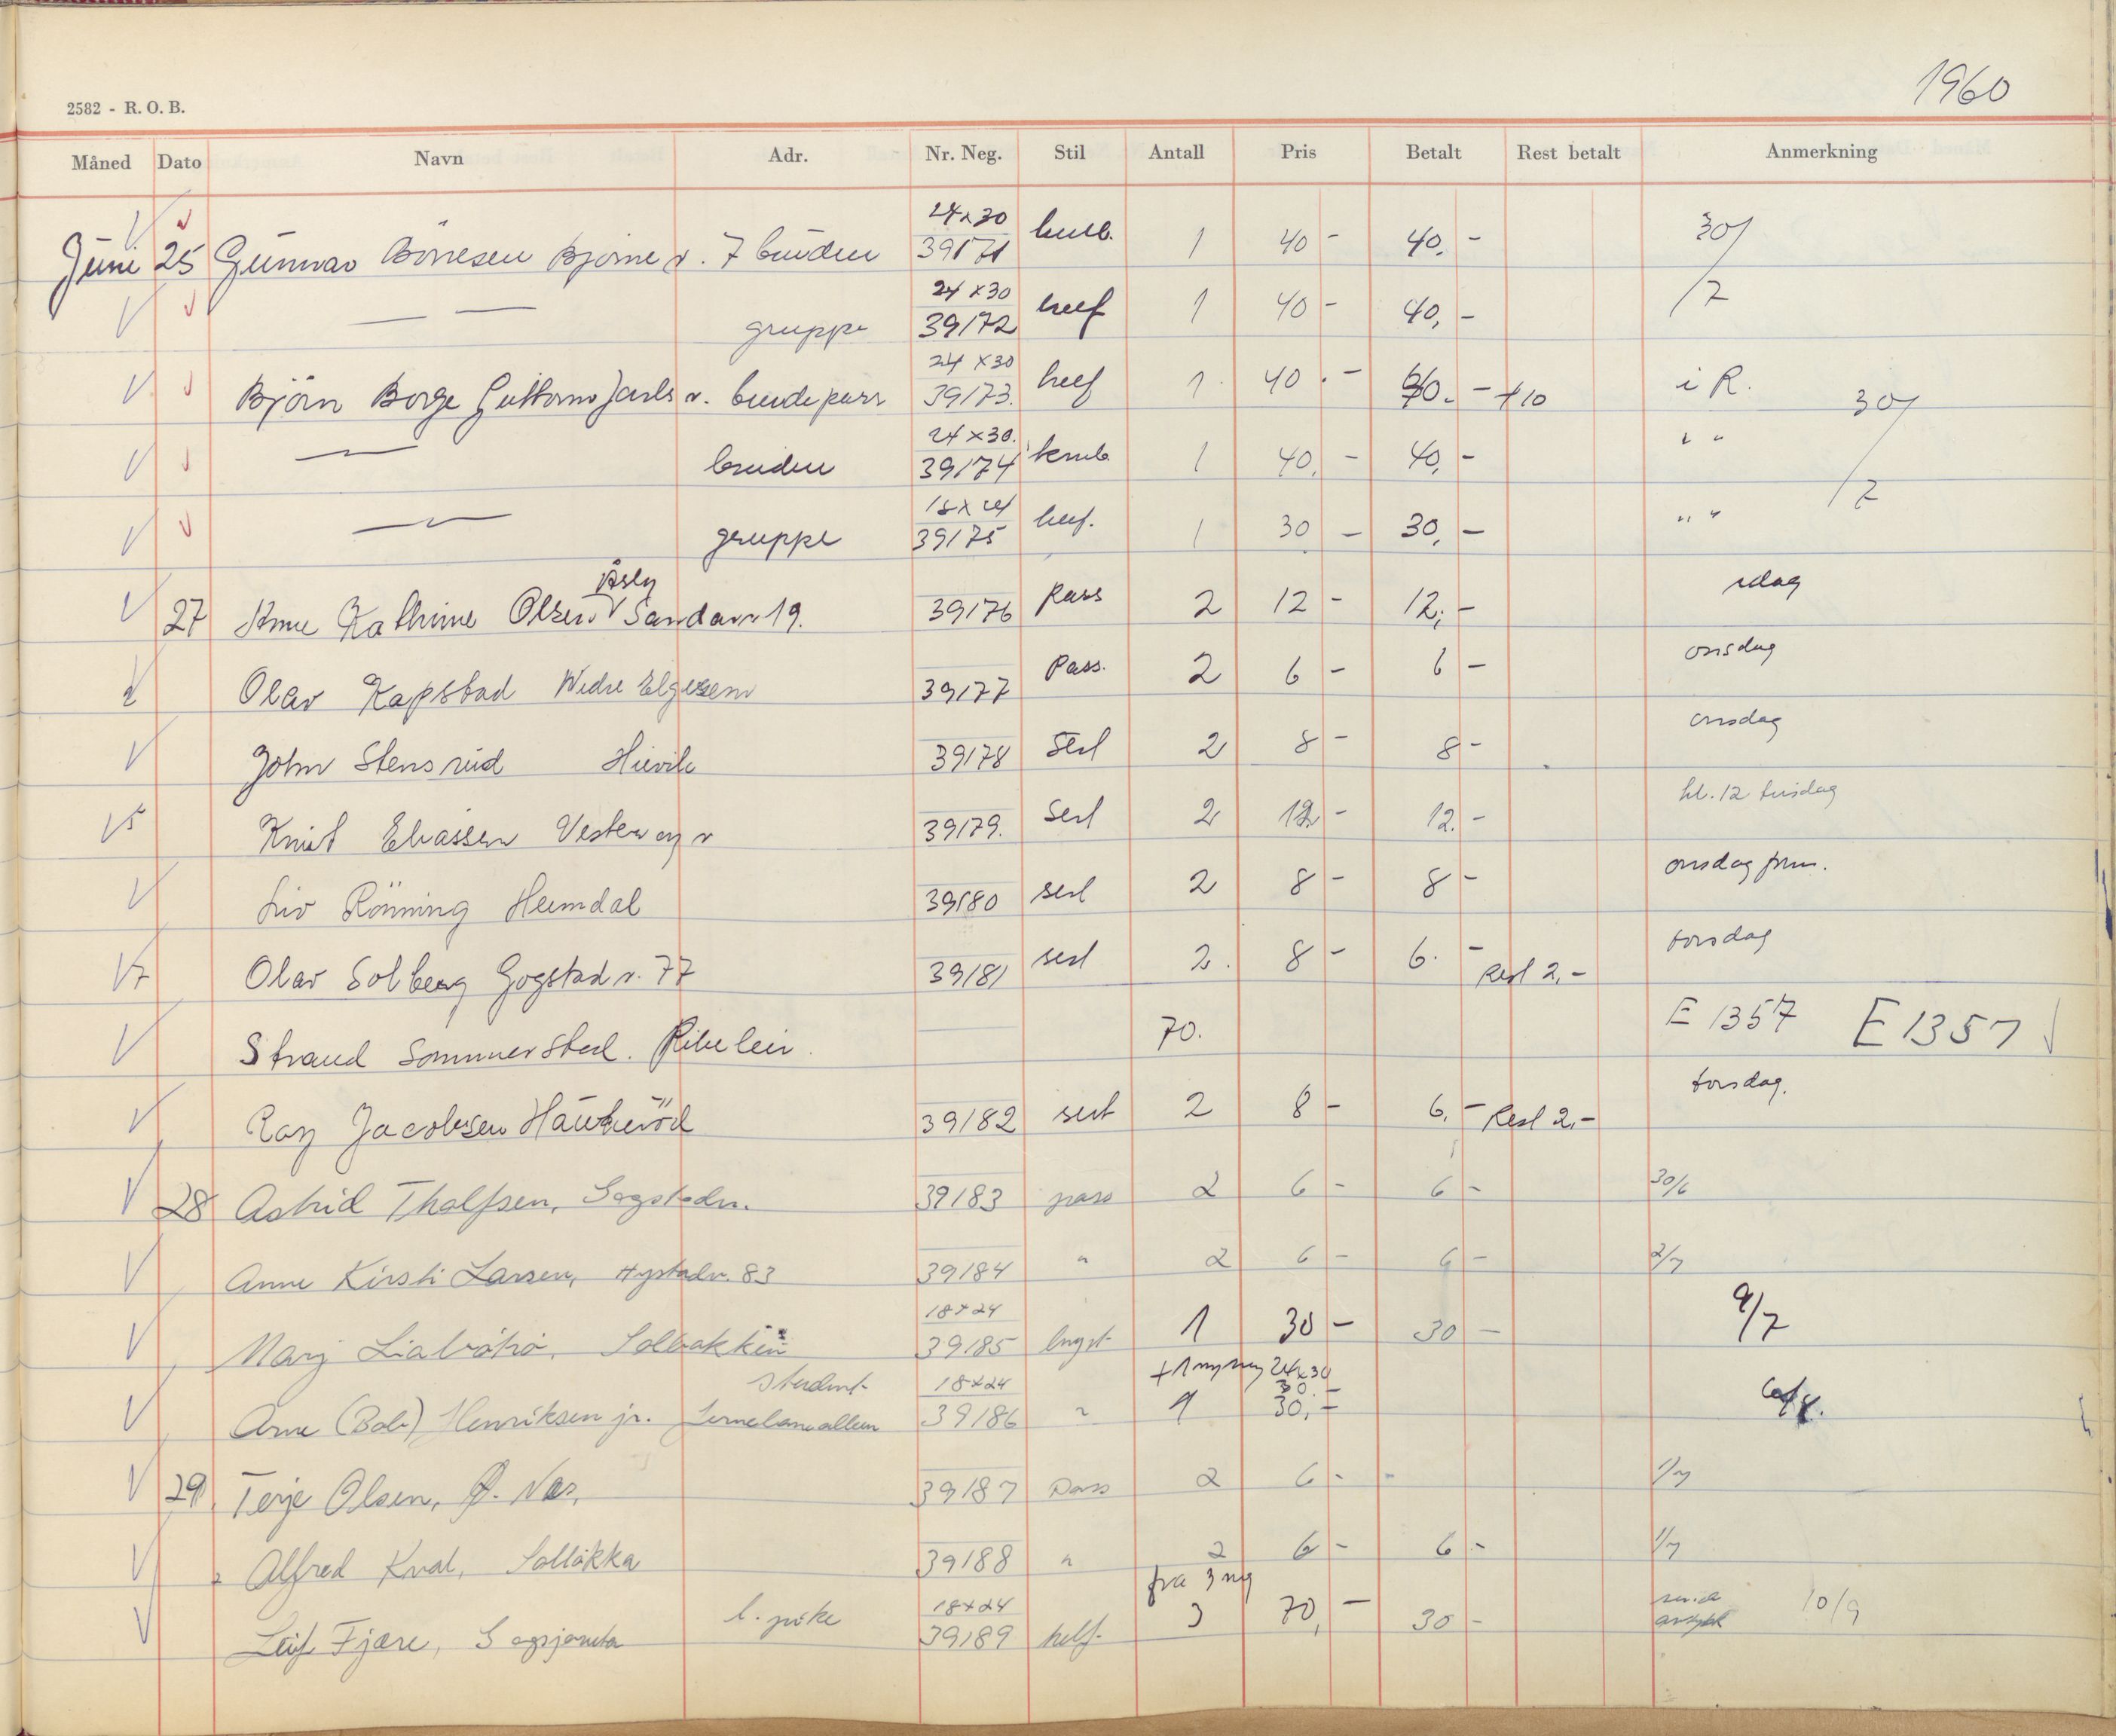 1960
2582 - R. O. B.
Måned Dato Navn Adr. Nr. Neg. Stil Antall Pris Betalt Rest betalt Anmerkning
24x30
Juni 25 Gunnar Börresen Bjørne v. 7 bruden 39171 kneb. 1 40 - 40. - 30/7
24 x 30
gruppe 39172 helf 1 40 - 40, -
24 x 30
Björn Borge Guttorm Jarls v. brudepar 39173. helf 1. 40. - - +10 i R. 30/7
24 x 30.
bruden 39174 kneb. 1 40, - 40, - " "
18 x 24
gruppe 39175 helf. 1 30 - 30, - " "
Åsly
27 Anne Kathrine Olsen Sandarv 19. 39176 Pass 2 12 - 12, - idag
Olav Kapstad Wedre Elgesem 39177 Pass. 2 6 - 6 - onsdag
John Stensrud Huvik 39178 Serl 2 8 - 8 - onsdag
Knut Eliassen Vesterøy v 39179. Serl 2 12 - 12. - kl. 12 tirsdag
Liv Rönning Heimdal 39180 serl 2 8 - 8 - onsdag frm.
Olav Solberg Gogstad v. 77 39181 serl 2. 8 - 6. - Rest 2,- torsdag
Strand Sommersted. 70. E 1357 E 1357
Roy Jacobsen Haukeröd 39182 serl 2 8 - 6. - Rest 2,- torsdag.
28 Astrid Tholfsen, Gogstadv. 39183 pass 2 6 - 6 - 30/6
Anne Kirsti Larsen, Nystadv. 83 39184 " 2 6 - 6 - 2/7
18x24
Mary Liabråtrø, Solbakken 39185 bryst 1 30 - 30 - 9/7
student 18x24 + 1 ny neg 24x30 30. -
Arne (Bob) Henriksen jr. 39186 " 1 30, -
29 Terje Olsen, Ø. Nes, 39187 Pass 2 6 - - 1/7
Alfred Kval, Solløkka 39188 " 2 6 - 6 - 1/7
fra 3 neg
l. pike 18x24
Leif Fjære, 39189 helf. 3 70, - 30 - 10/9